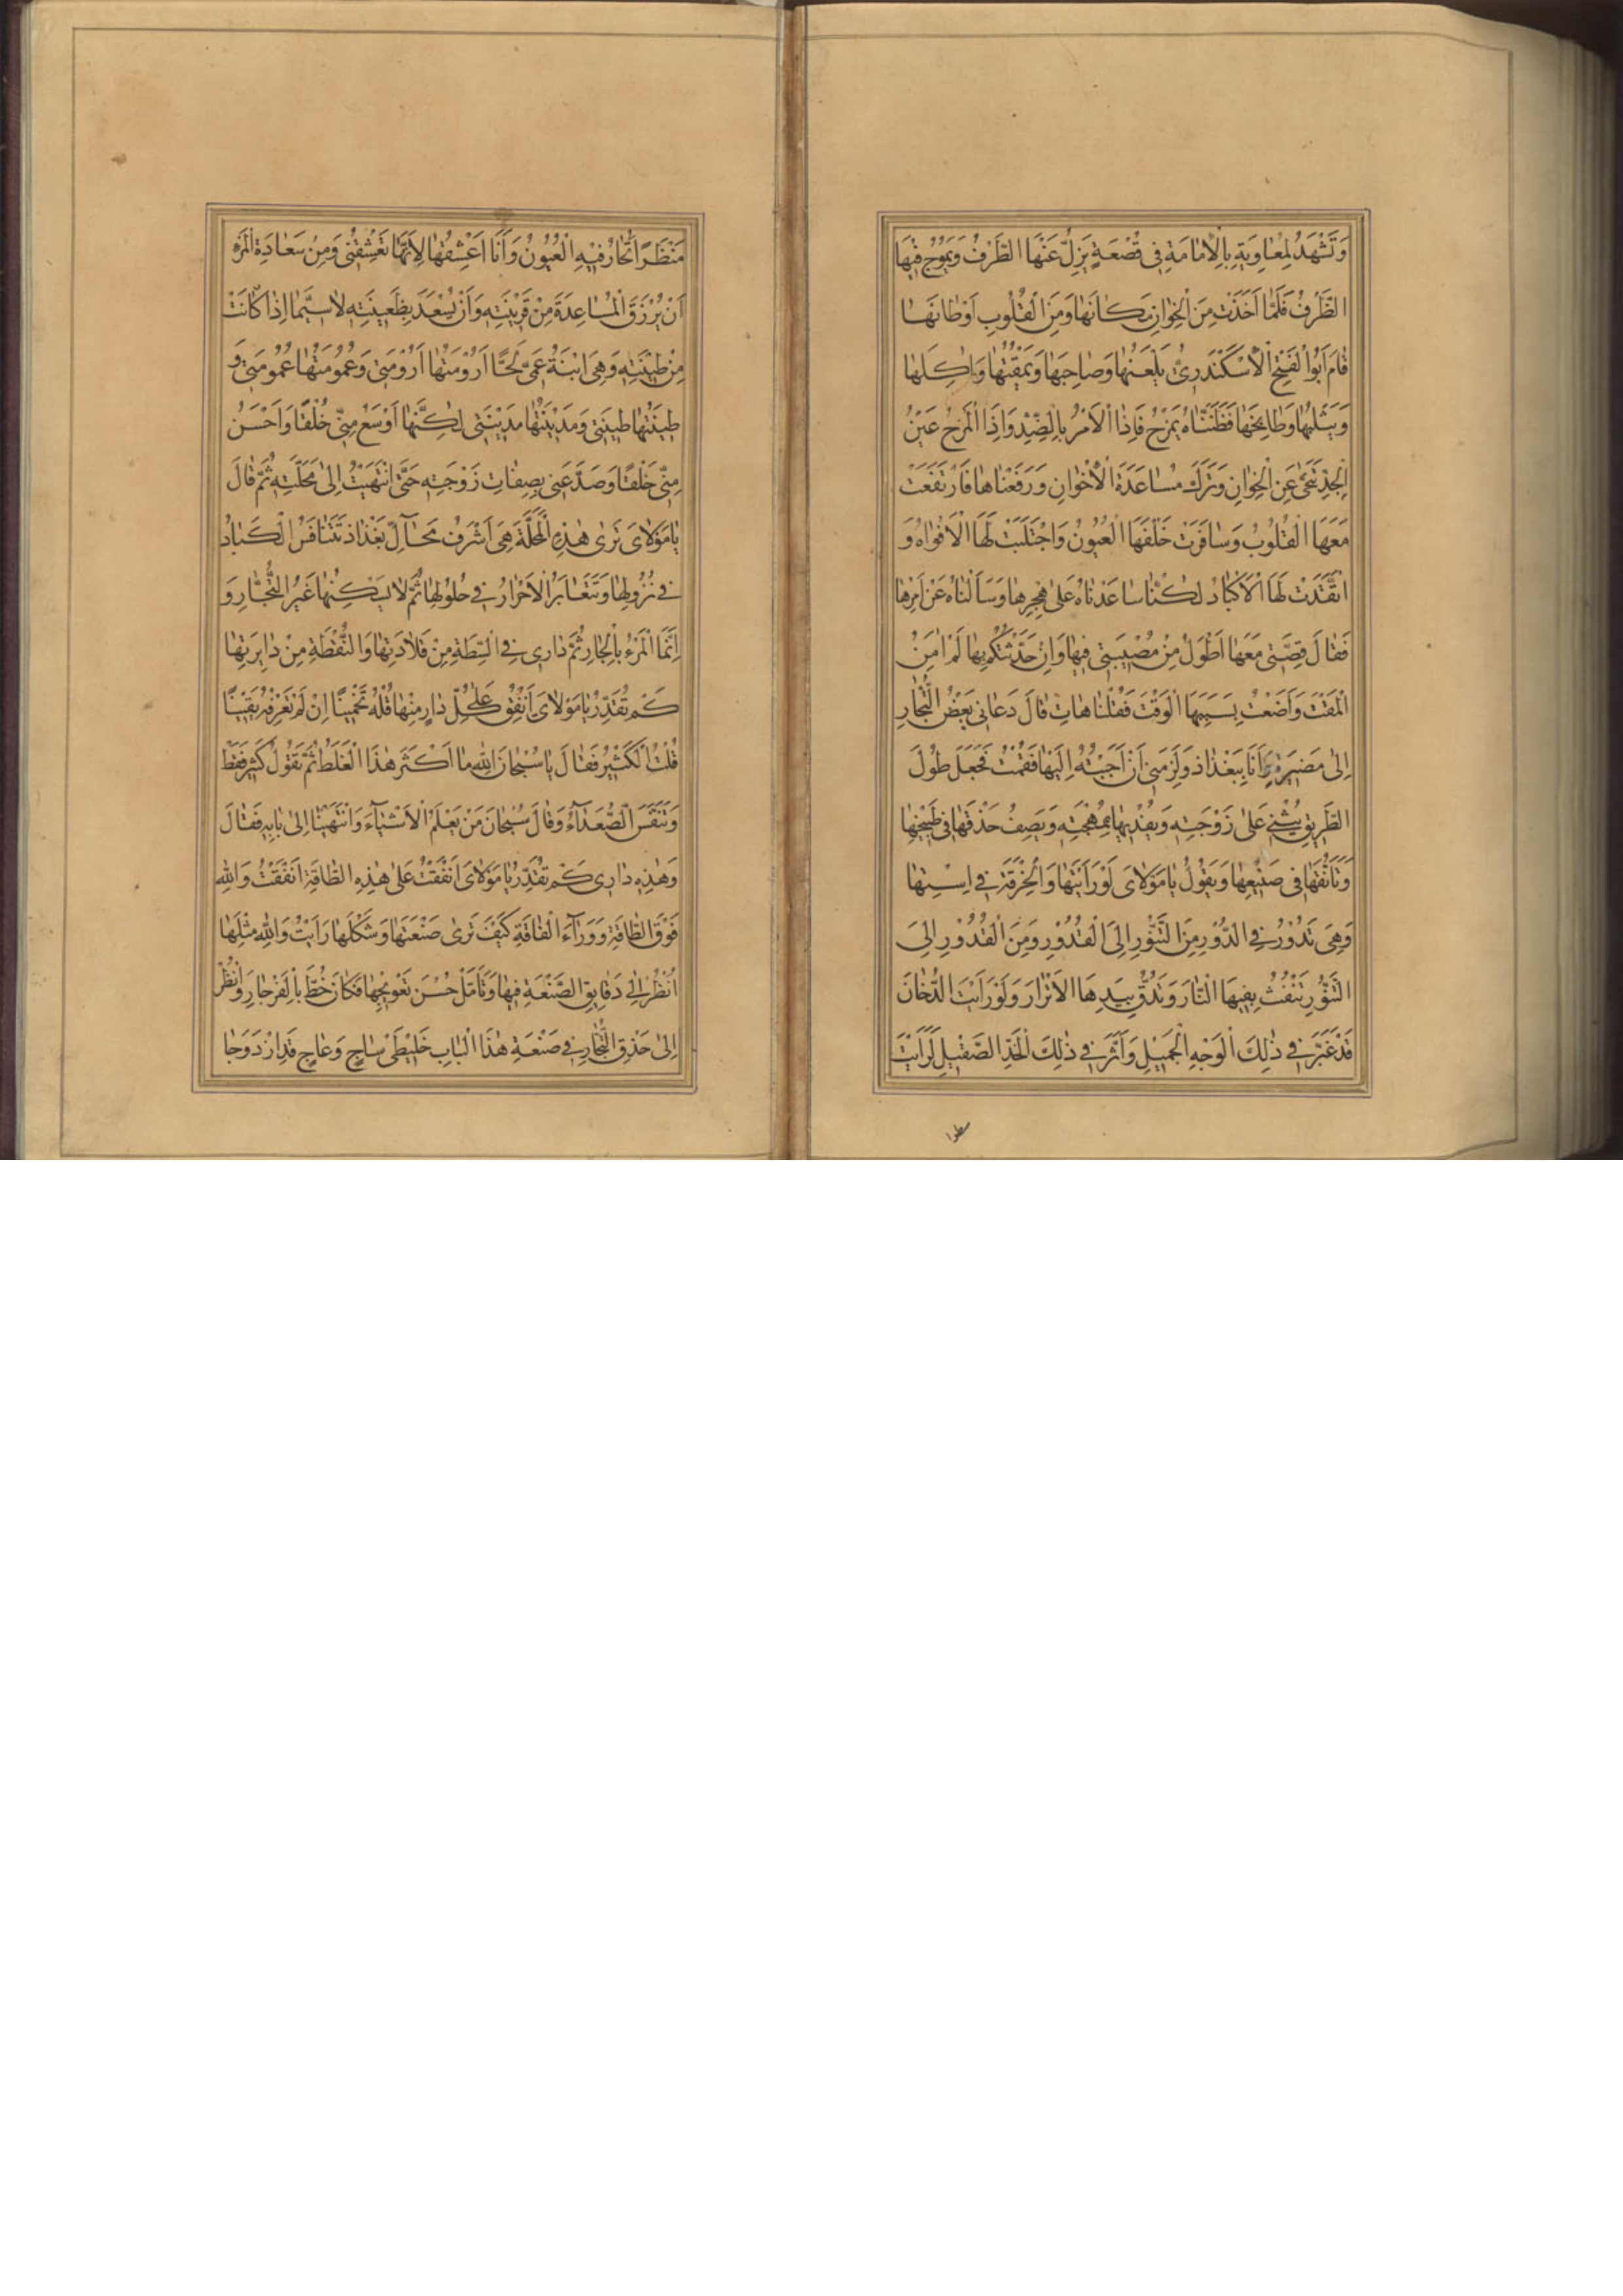 وَتَشْهَدُ لِمُعَاوِيَةَ بِالْاِمَامَةِ فِى قَصْعَةٍ يَزِلُّ عَنْهَا الطَّرْفُ وَيَمُوجُ فِيْهَا
الظَّرْفُ فَلَمَّا اَخَذَتْ مِنَ الْخِوَانِ مَكَانَهَا وَمِنَ الْقُلُوبِ اَوْطَانَهَا
قَامَ اَبُوا لْفَتْحِ الْاَسْكَنْدَرِىُّ يَلْعَنُهَا وَصَاحِبَهَا وَيَمْقُتُهَا وَاٰكِلَهَا
وَيَثْلِبُهَا وَطَابِخَهَا فَظَنَنَّاهُ يَمْزَحُ فَاِذَا الْاَمْرُ بِالضِّدِّ وَاِذَا الْمَزْحُ عَيْنُ
الْجِدِّ تَنَحّٰى عَنِ الْخِوَانِ وَتَرَكَ مُسَاعَدَةَ الْاِخْوَانِ وَرَفَعْنَاهَا فَارْتَفَعَتْ
مَعَهَا الْقُلُوبُ وَسَافَرَتْ خَلْفَهَا الْعُيُونُ وَاجْتَلَبَتْ لَهَا الْاَفْوَاهُ وَ
اتَّقَدَتْ لَهَا الْاَكْبَادُ لٰكِنَّا سَاعَدْنَاهُ عَلٰى هَجْرِهَا وَسَاَلْنَاهُ عَنْ اَمْرِهَا
فَقَالَ قِصَّتِى مَعَهَا اَطْوَلُ مِنْ مُصِيْبَتِى فِيهَا وَاِنْ حَدَّثْتُكُمْ بِهَا لَمْ اٰمَنِ
الْمَقْتَ وَاَضَعْتُ بِسَبَبِهَا الْوَقْتَ فَقُلْنَا هَاتِ قَالَ دَعَانِى بَعْضُ التُّجَّارِ
اِلٰى مَضِيْرَةٍ وَاَنَا بِبَغْدَاذَ وَلَزِمَنِى اَنْ اَجَبْتُهُ اِلَيْهَا فَقُمْتُ فَجَعَلَ طُولَ
الطَّرِيقِ يُثْنِى عَلٰى زَوْجَتِهِ وَيُفْدِيْهَا بِمُهْجَتِهِ وَيَصِفُ حَذْقَهَا فِى طَبْخِهَا
وَتَاَنُّقَهَا فِى صَنِيْعِهَا وَيَقُولُ يَا مَوْلَاىَ لَوْ رَاَيْتَهَا وَالْخِرْقَةُ فِى اِسْتِهَا
وَهِىَ تَدُوْرُ فِى الدُّوْرِ مِنَ التَّنُّوْرِ اِلَى الْقُدُوْرِ وَمِنَ الْقُدُوْرِ اِلَى
التَّنُّوْرِ تَنْفُثُ بِفِيْهَا النَّارَ وَتَدُقُّ بِيَدِهَا الْاَبْزَارَ وَلَوْ رَاَيْتَ الدُّخَانَ
قَدْ غَبَّرَ فِى ذٰلِكَ الْوَجْهِ الْجَمِيْلِ وَاَثَّرَ فِى ذٰلِكَ الْخَدِّ الصَّقِيْلِ لَرَاَيْتَ
مَنْظَرًا تَحَارُ فِيْهِ الْعُيُونُ وَاَنَا اَعْشِقُهَا لِاَنَّهَا تَعْشِقُنِى وَمِنْ سَعَادَةِ الْمَرْءِ
اَنْ يُرْزَقَ الْمُسَاعِدَةَ مِنْ قَرِيْنَتِهِ وَاَنْ يُسْعَدَ بِظَعِيْنَتِهِ لَا سِيَّمَا اِذَا كَانَتْ
مِنْ طِيْنَتِهِ وَهِىَ ابْنَةُ عَمِّى لَحًّا اَرُوْمَتُهَا اَرُوْمَتِى وَعُمُوْمَتُهَا عُمُوْمَتِى وَ
طِيْنَتُهَا طِيْنَتِى وَمَدِيْنَتُهَا مَدِيْنَتِى لٰكِنَّهَا اَوْسَعُ مِنِّى خُلْقًا وَاَحْسَنُ
مِنِّى خَلْقًا وَصَدَّعَنِى بِصِفَاتِ زَوْجَتِهِ حَتَّى انْتَهَيْتُ اِلٰى مَحَلَّتِهِ ثُمَّ قَالَ
يَا مَوْلَاىَ تَرٰى هٰذِهِ الْمَحَلَّةَ هِىَ اَشْرَفُ مَحَالِّ بَغْذَاذَ تَتَنَافَسُ الْكِبَارُ
فِى نُزُولِهَا وَتَتَغَايَرُ الْاَحْرَارُ فِى حُلُولِهَا ثُمَّ لَا يَسْكُنُهَا غَيْرُ التُّجَّارِ وَ
اِنَّمَا الْمَرْءُ بِالْجَارِ ثُمَّ دَارِى فِى السِّطَةِ مِنْ قِلَادَتِهَا وَالنُّقْطَةِ مِنْ دَايِرَتِهَا
كَمْ تُقَدِّرُ يَا مَوْلَاىَ اُنْفِقَ عَلٰى كُلِّ دَارٍ مِنْهَا قُلْهُ تَخْمِيْنًا اِنْ لَمْ تَعْرِفْهُ يَقِيْنًا
قُلْتُ الْكَثِيْرُ فَقَالَ يَا سُبْحَانَ اللّٰهِ مَا اَكْثَرَ هٰذَا الْغَلَطَ ثُمَّ تَقُولُ كَثِيْرٌ فَقَطْ
وَتَنَفَّسَ الصُّعَدَآءَ وَقَالَ سُبْحَانَ مَنْ يَعْلَمُ الْاَشْيَآءَ وَانْتَهَيْنَا اِلٰى بَابِهِ فَقَالَ
وَهٰذِهِ دَارِى كَمْ تُقَدِّرُ يَا مَوْلَاىَ اَنْفَقْتُ عَلٰى هٰذِهِ الطَّاقَةِ اَنْفَقْتُ وَاللّٰهِ
فَوْقَ الطَّاقَةِ وَوَرَآءَ الْفَاقَةِ كَيْفَ تَرٰى صَنْعَتَهَا وَشَكْلَهَا رَاَيْتَ وَاللّٰهِ مِثْلَهَا
اُنْظُرْ اِلٰى دَقَايِقِ الصَّنْعَةِ فِيْهَا وَتَاَمَّلْ حُسْنَ تَعْوِيْجِهَا فَكَاَنْ خُطَّ بِالْفَرْجَارِ وَانْظُرْ
اِلٰى حَذْقِ النَّجَّارِ فِى صَنْعَةِ هٰذَا الْبَابِ خَلِيْطَىْ سَاجٍ وَعَاجٍ قَدِ ازْدَوَجَا